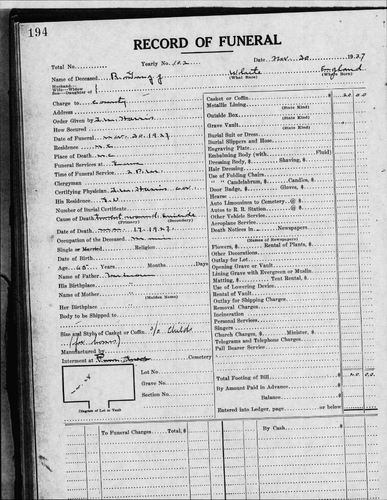 194
RECORD OF FUNERAL
Total No. Yearly No. 102 Date Nov. 20 1927
Name of Deceased White England
(What Race) (Where Born)
Husband
Wife—Widow
Son—Daughter of
Charge to County
Address
Order Given by Harris
How Secured
Date of Funeral Nov. 20. 1927.
Residence
Place of Death
Funeral Services at
Time of Funeral Service
Clergyman
Certifying Physician Harris Cor.
His Residence
Number of Burial Certificate
Cause of Death Gunshot wound Suicide
(Primary) (Secondary)
Date of Death 17-1927.
Occupation of the Deceased
Single or Married Religion
Date of Birth
Age 65 Years Months Days
Name of Father Unknown
His Birthplace
Name of Mother
(Maiden Name)
Her Birthplace
Body to be Shipped to
Size and Style of Casket or Coffin
Manufactured by
Interment at Cemetery
Lot No.
Grave No.
Section No.
Diagram of Lot or Vault
Casket or Coffin 20 00
Metallic Lining
(State Kind)
Outside Box
(State Kind)
Grave Vault
(State Kind)
Burial Suit or Dress
Burial Slippers and Hose
Engraving Plate
Embalming Body (with Fluid)
Dressing Body, $ Shaving, $
Hair Dressing
Use of Folding Chairs
" " Candelabrum, $ Candles, $
Door Badge, $ Gloves, $
Hearse
Auto Limousines to Cemetery @ $
Autos to R. R. Station @ $
Other Vehicle Service
Aeroplane Service
Death Notices in Newspapers
(Names of Newspapers)
Flowers, $ Rental of Plants, $
Other Decorations
Outlay for Lot
Opening Grave or Vault
Lining Grave with Evergreen or Muslin
Matting, $ Tent Rental, $
Use of Lowering Device
Rental of Vault
Outlay for Shipping Charges
Removal Charges
Incineration
Personal Services
Singers
Church Charges, $ Minister, $
Telegrams and Telephone Charges
Pall Bearer Service
Total Footing of Bill $ 20 00
By Amount Paid in Advance
Balance
Entered into Ledger, page or below
To Funeral Charges Total, $
By Cash $